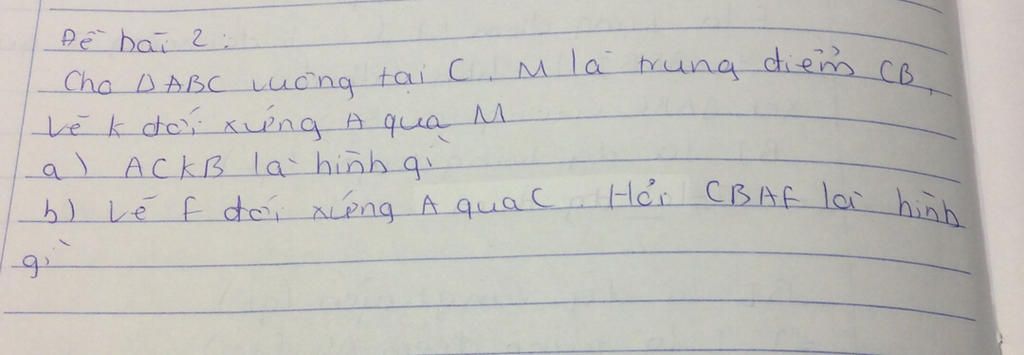 Đề bài 2:
Cho ΔABC vuông tại C, M là trung điểm CB,
Vẽ K đối xứng A qua M
a) ACKB là hình gì
b) Vẽ F đối xứng A qua C Hỏi CBAF là hình
gì